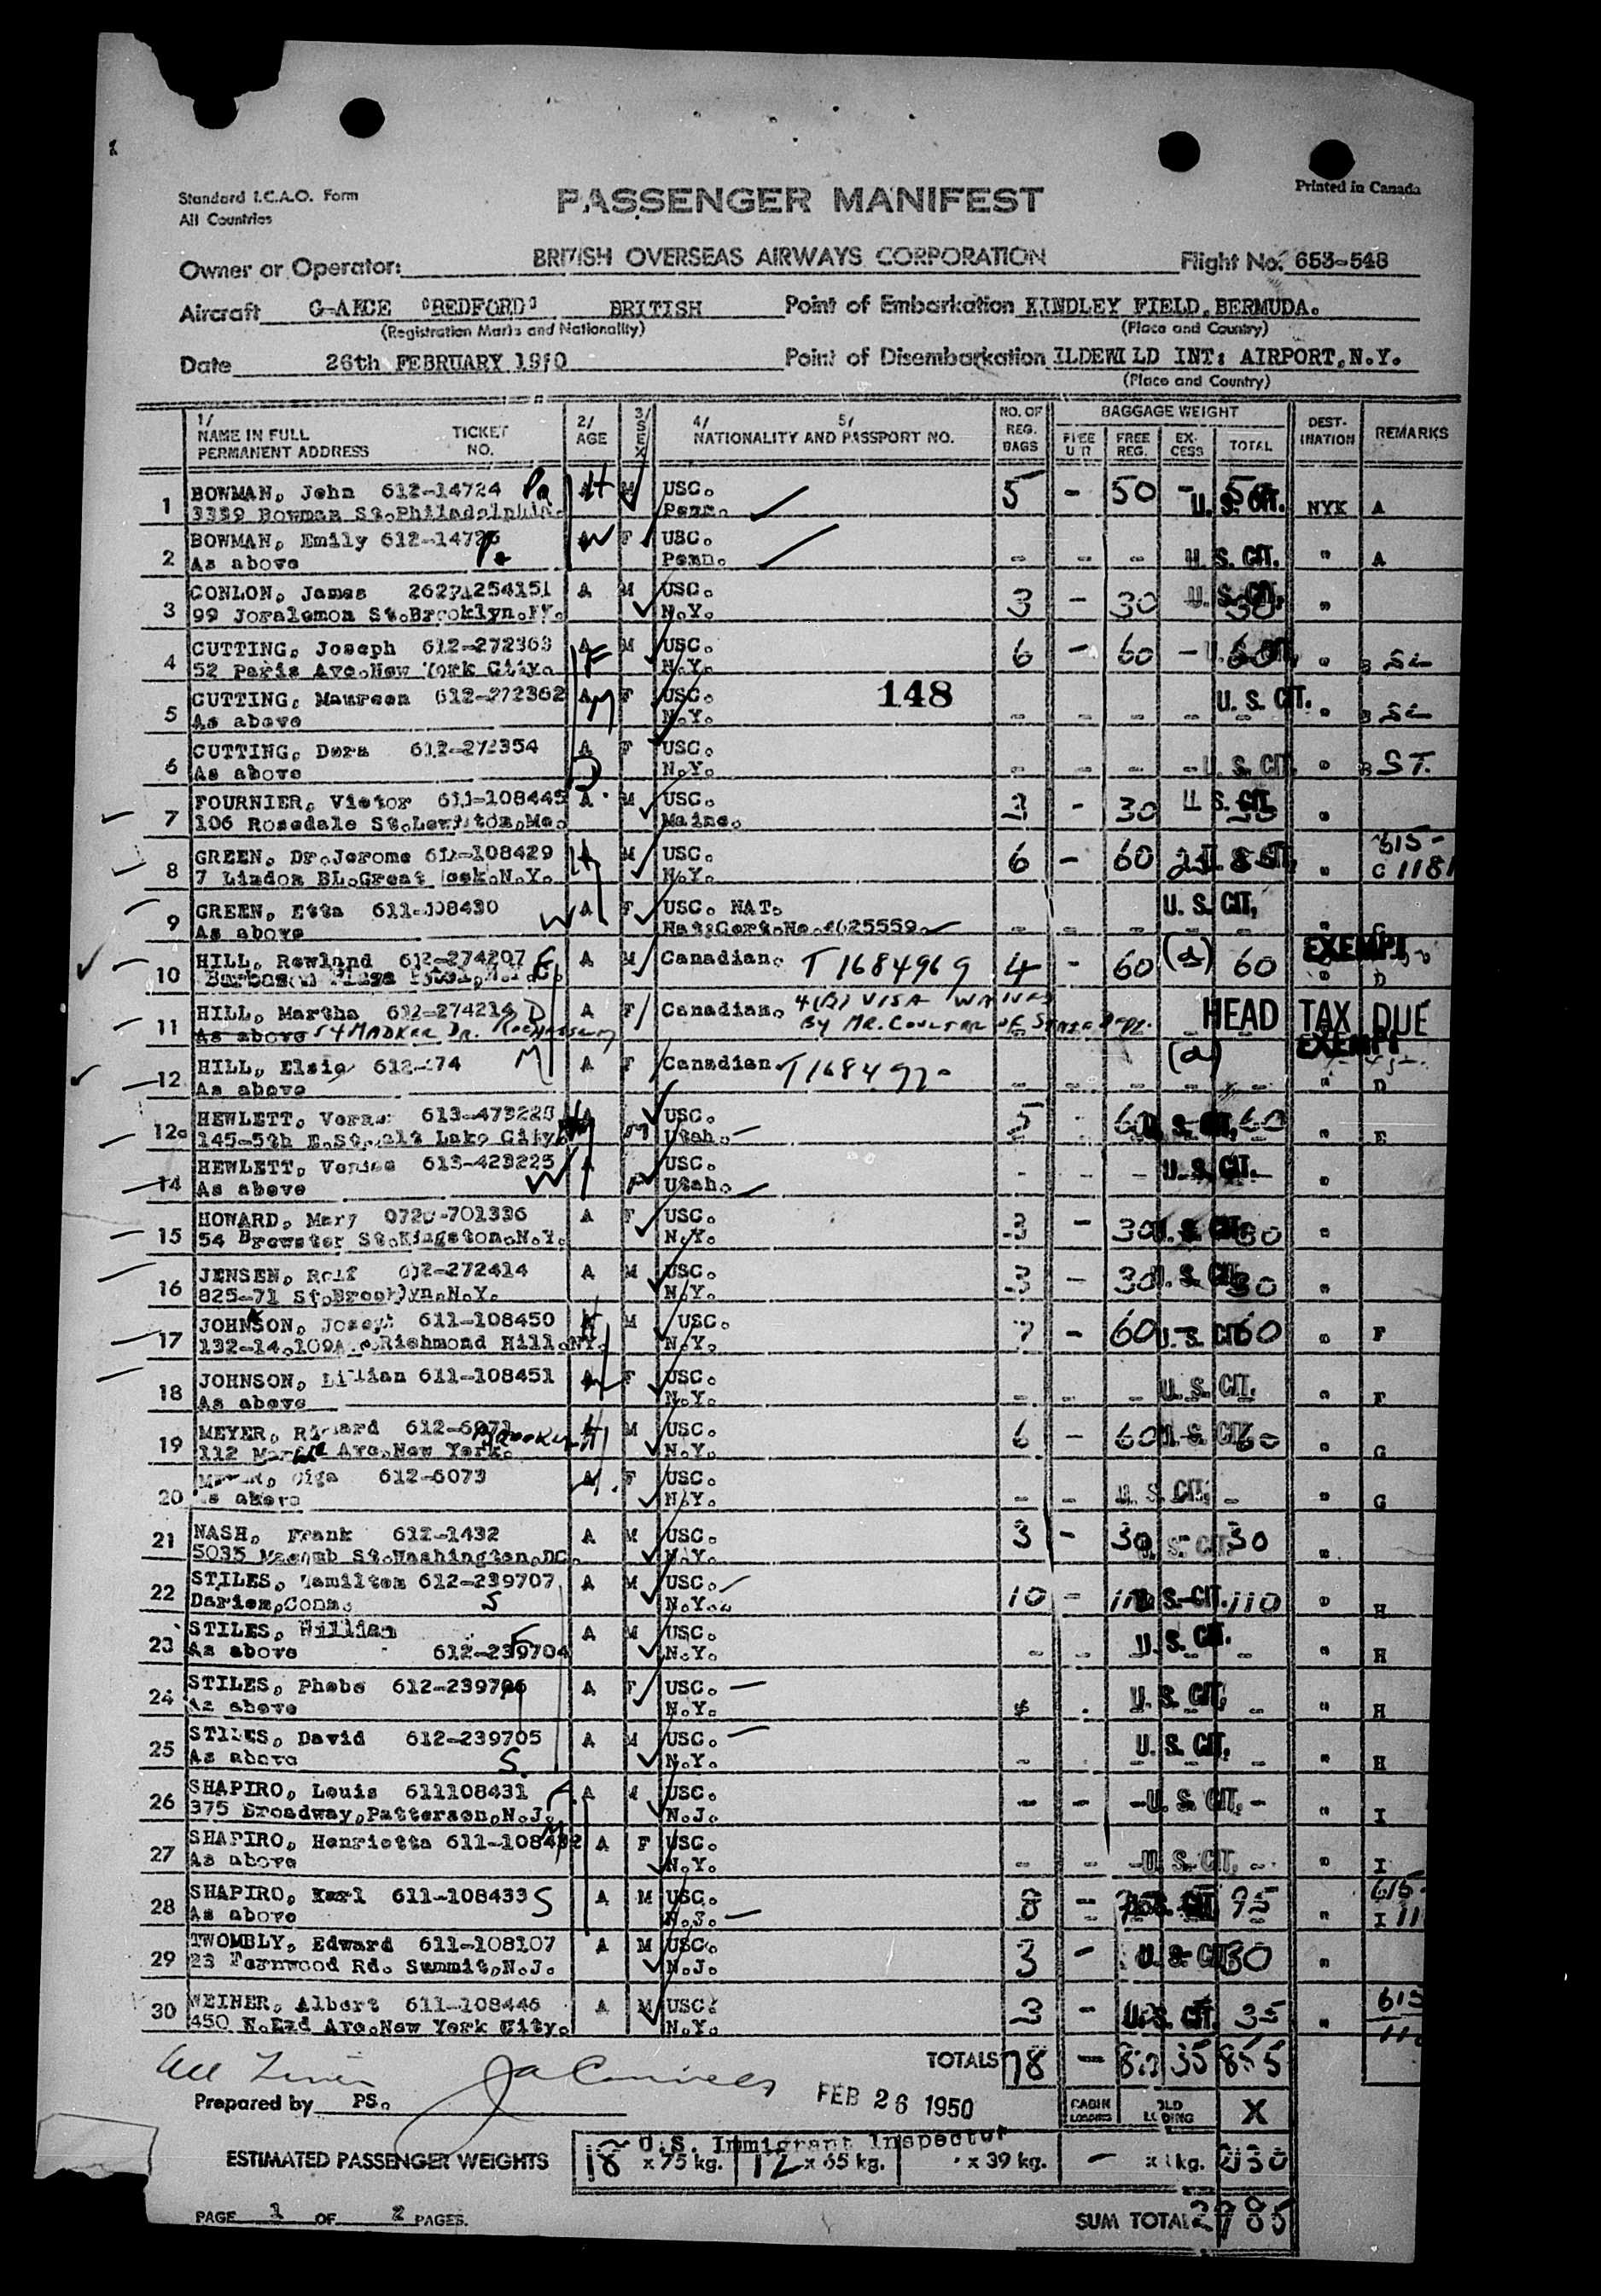 Standard I.C.A.O. Form
All Countries
PASSENGER MANIFEST
Printed in Canada
Owner or Operator: BRITISH OVERSEAS AIRWAYS CORPORATION Flight No. 653-548
Aircraft G-AKCE "BEDFORD" BRITISH Point of Embarkation KINDLEY FIELD, BERMUDA.
(Registration Marks and Nationality) (Place and Country)
Date 26th FEBRUARY 1950 Point of Disembarkation ILDEWILD INT: AIRPORT, N.Y.
(Place and Country)
1/ NAME IN FULL PERMANENT ADDRESS TICKET NO. 2/ AGE 3/ SEX 4/ 5/ NATIONALITY AND PASSPORT NO. NO. OF REG. BAGS BAGGAGE WEIGHT FREE FREE REG. EX-CESS TOTAL DEST-INATION REMARKS
1 BOWMAN, John 612-14724 Pa H M USC. 5 - 50 - 50 U. S. CIT. NYK A
3339 Bowman St. Philadelphia. Penn.
2 BOWMAN, Emily 612-14726 W F USC. - - - U. S. CIT. " A
As above Pa Penn.
3 CONLON, James A M USC. 3 - 30 - 30 U. S. CIT. "
99 Joralemon St. Brooklyn. NY. N.Y.
4 CUTTING, Joseph 612-272363 A F M USC. 6 - 60 - 60 U. S. CIT. " B SL
52 Paris Ave. New York City. N.Y.
5 CUTTING, Maureen 612-272362 A M F USC. 148 - - - U. S. CIT. " B SL
As above N.Y.
6 CUTTING, Dora 612-272354 A D F USC. - - - - U. S. CIT. " B ST.
As above N.Y.
7 FOURNIER, Victor 611-108445 A M USC. 3 - 30 U. S. CIT. 30 "
106 Rosedale St. Lewiston, Me. Maine.
8 GREEN, Dr. Jerome 611-108429 H M USC. 6 - 60 U. S. CIT. " 615- C 1181
7 Lindon BL. Great Neck. N.Y. N.Y.
9 GREEN, Etta 611-108430 W A F USC. NAT. - - - U. S. CIT. " C
As above Nat: Cert. No. 4625559.
10 HILL, Rowland 612-274207 F A M Canadian. T 1684969 4 - 60 (a) 60 EXEMPT " D
Barbazon Plaza Hotel, N.Y.C.
11 HILL, Martha 612-274214 D A F Canadian. 4(B) VISA WAIVED HEAD TAX DUE
As above 54 MADKER DR. By MR. COULTER OF State Dept. EXEMPT
12 HILL, Elsie 612-274 M A F Canadian T168497 - - - (a) - " D
As above
12a HEWLETT, 613-473223 A M USC. 5 - 60 U. S. CIT. 60 " E
145-5th E. St. Salt Lake City Utah.
14 HEWLETT, 613-423225 W A F USC. - - - U. S. CIT. - "
As above Utah.
15 HOWARD, Mary 0720-701336 A F USC. 3 - 30 U. S. CIT. 30 "
54 Brewster St. Kingston. N.Y. N.Y.
16 JENSEN, Rolf 612-272414 A M USC. 3 - 30 U. S. CIT. 30 "
825-71 St. Brooklyn. N.Y. N.Y.
17 JOHNSON, Joseph 611-108450 H M USC. 7 - 60 U. S. CIT. 60 " F
132-14, 109 Richmond Hill. NY. N.Y.
18 JOHNSON, Lillian 611-108451 W F USC. - - - U. S. CIT. " F
As above N.Y.
19 MEYER, Richard 612-6071 H M USC. 6 - 60 U. S. CIT. 60 " G
112 Ave. New York. N.Y.
20 MEYER, Olga 612-6073 A F USC. - - U. S. CIT. - " G
As above N.Y.
21 NASH, Frank 612-1432 A M USC. 3 - 30 - 30 U. S. CIT. "
5035 Macomb St. Washington, DC. N.Y.
22 STILES, Hamilton 612-239707 A M USC. 10 - 110 U. S. CIT. 110 " H
Darien, Conn. S N.Y.
23 STILES, William A M USC. - - U. S. CIT. - " H
As above F 612-239704 N.Y.
24 STILES, Phebe 612-239706 M A F USC. U. S. CIT. - " H
As above N.Y.
25 STILES, David 612-239705 A M USC. - - U. S. CIT. - " H
As above S. N.Y.
26 SHAPIRO, Louis 611108431 F. A M USC. - - - U. S. CIT. - " I
375 Broadway, Patterson, N.J. N.J.
27 SHAPIRO, Henrietta 611-108432 M A F USC. - - - U. S. CIT. - " I
As above N.Y.
28 SHAPIRO, Karl 611-108433 S A M USC. 8 - U. S. CIT. 95 " 615- I 11
As above N.J.
29 TWOMBLY, Edward 611-108107 A M USC. 3 - U. S. CIT. 30 "
23 Fernwood Rd. Summit, N.J. N.J.
30 WEINER, Albert 611-108446 A M USC. 3 - U. S. CIT. 35 " 615
450 W. End Ave. New York City. N.Y.
TOTALS 78 - 820 35 855
Prepared by PS. FEB 26 1950 CABIN LOADING HOLD LOADING X
U.S. Immigrant Inspector
ESTIMATED PASSENGER WEIGHTS 18 x 75 kg. 12 x 65 kg. x 39 kg. - x kg.
PAGE 1 OF 2 PAGES. SUM TOTAL